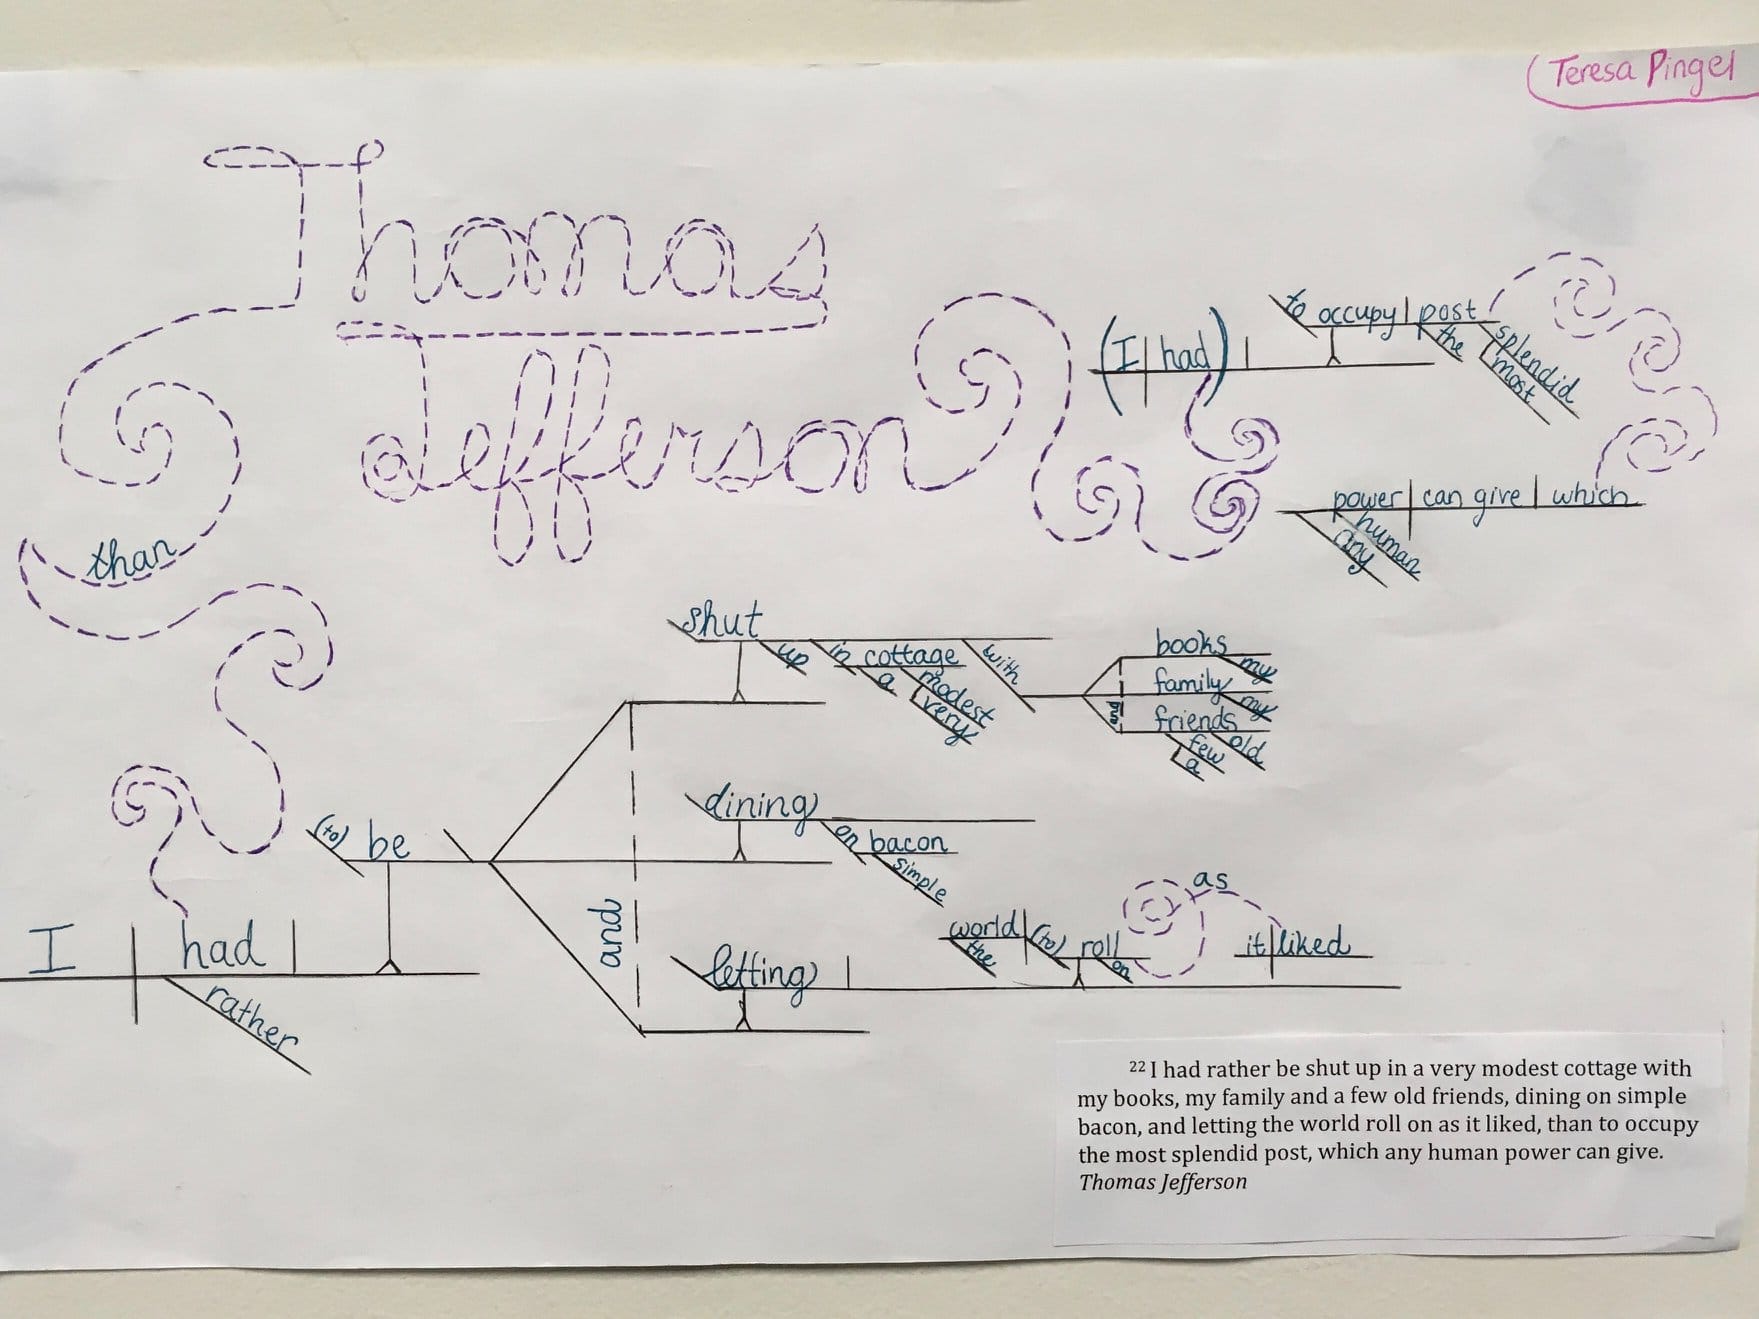 Teresa Pingel
Thomas
Jefferson
(I | had) |
to occupy | post
the
splendid
most
power | can give | which
human
any
than
shut
up
in cottage
a
modest
very
with
books
my
family
my
and
friends
old
few
a
dining
on bacon
simple
(to) be
and
I | had |
rather
letting |
world | (to) roll
the
on
as
it | liked
22 I had rather be shut up in a very modest cottage with
my books, my family and a few old friends, dining on simple
bacon, and letting the world roll on as it liked, than to occupy
the most splendid post, which any human power can give.
Thomas Jefferson